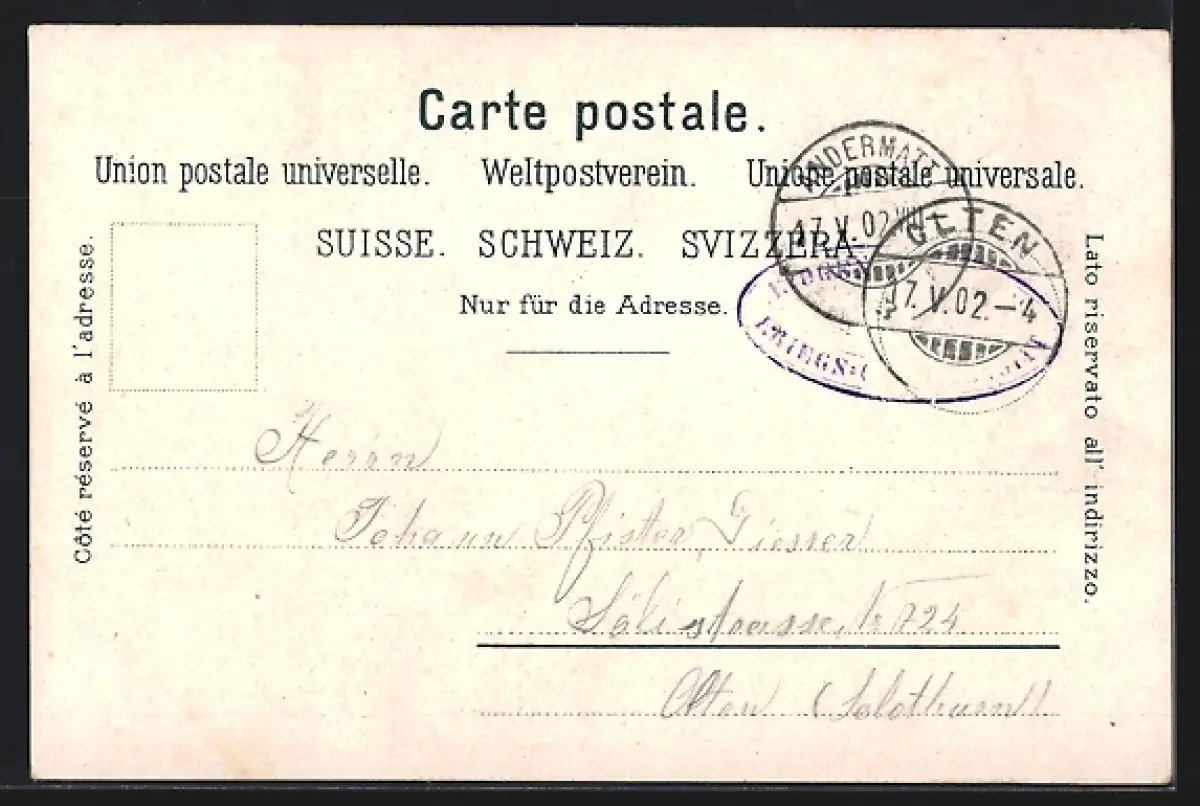 Carte postale.
Union postale universelle. Weltpostverein. Unione postale universale.
SUISSE. SCHWEIZ. SVIZZERA.
Nur für die Adresse.
Côté réservé à l'adresse.
Lato riservato all' indirizzo.
ANDERMATT
17.V.02
OLTEN
17.V.02.-4
Herrn
Johann Pfister, Giesser
Sälistrasse, № 724
Olten (Solothurn)